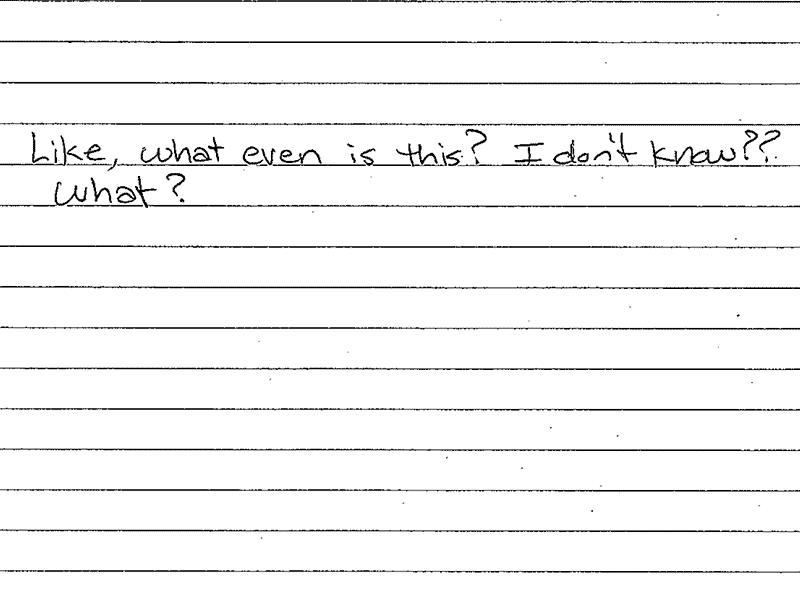 Like, what even is this? I don't know??
what?